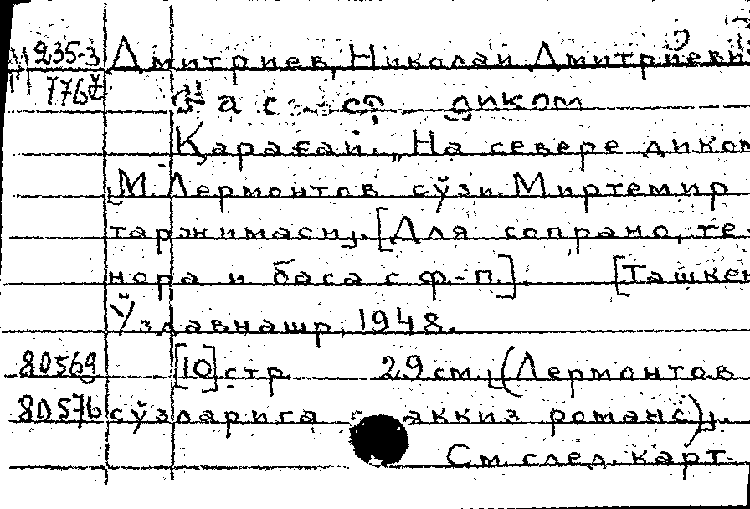 М 235-3 Дмитриев, Николай Дмитриеви
М 1767
диком
Қарағай. „На севере диком
М. Лермонтов сўзи. Миртемир
таржимаси„. [Для сопрано, те-
нора и баса с ф.-п.]. [Ташкен
Ўздавнашр, 1948.
80569 [10] стр. 29 см. (Лермонтов
80576 сўзларига саккиз романс).
См. след. карт.